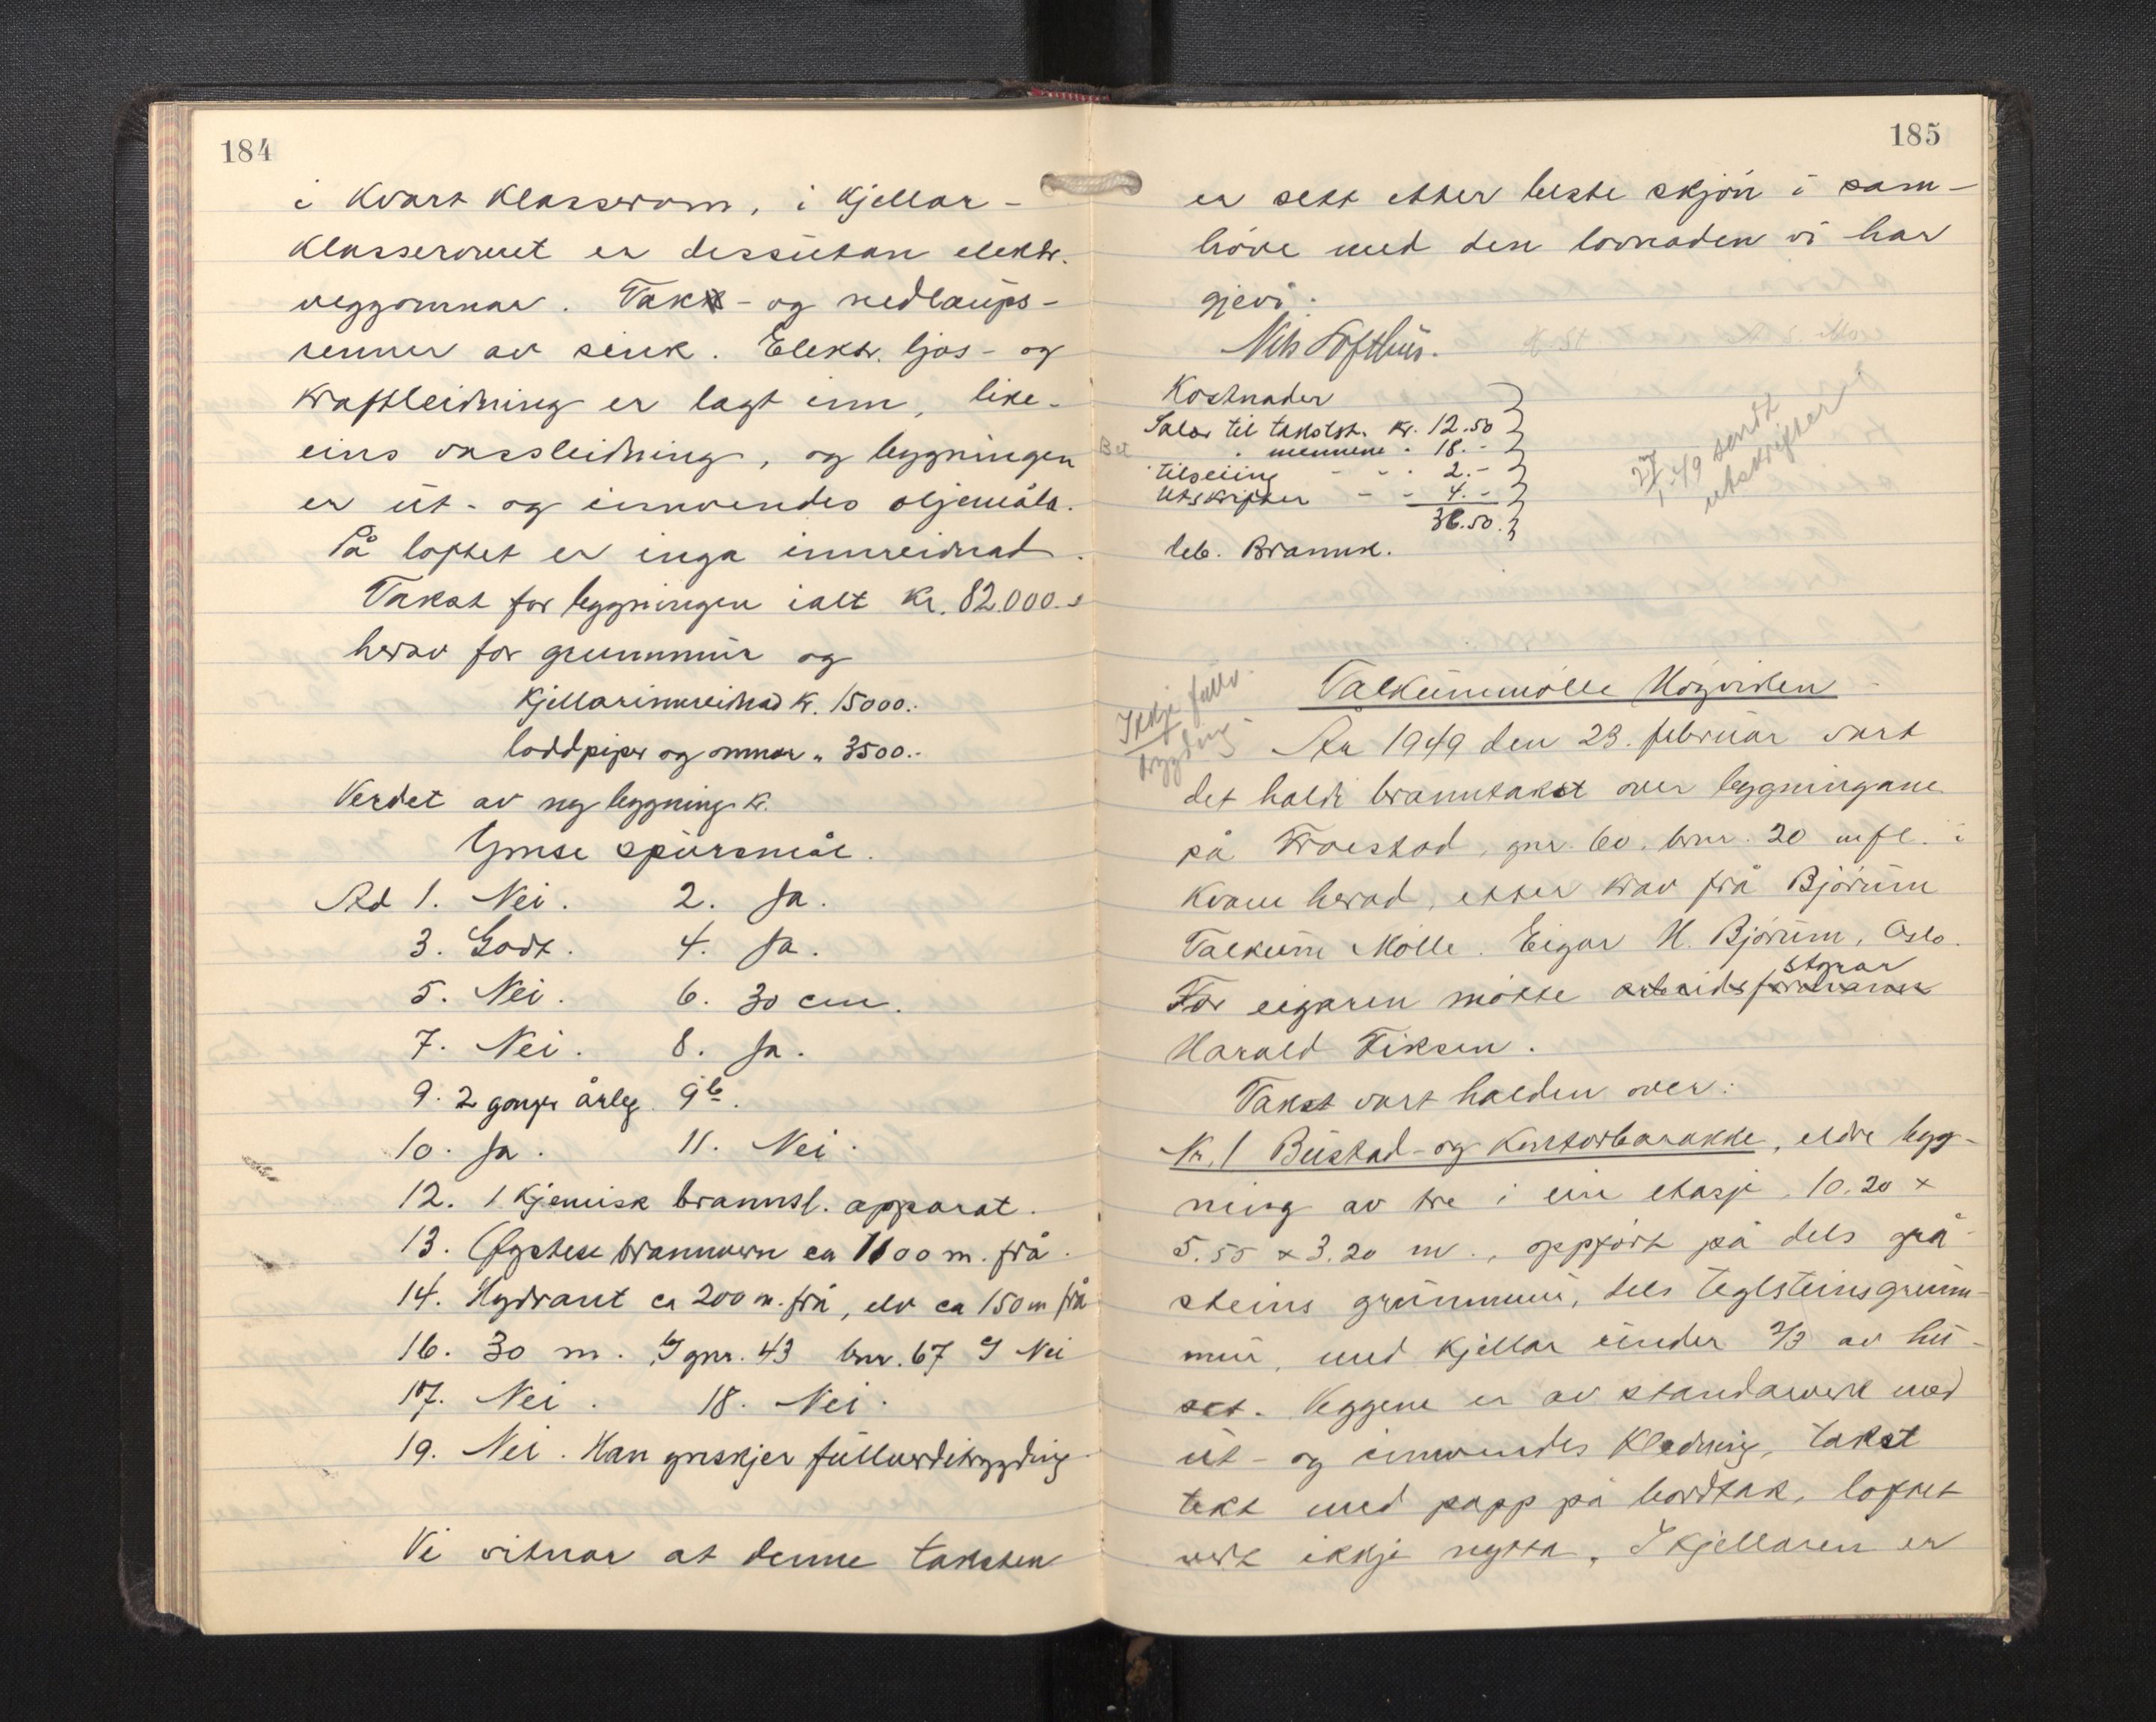 184
i kvart klasserom, i kjellar-
klasserommet er dessutan elektr.
veggomnar. Tak- og nedlaups-
renner av sink. Elektr. ljos- og
kraftleidning er lagt inn, like-
eins vassleidning, og bygningen
er ut- og innvendes oljemåla.
På loftet er inga innreidnad.
Takst for bygningen ialt kr. 82.000.-
herav for grunnmur og
kjellarinnreidnad kr. 15000.-
loddpiper og omnar " 3500.-
Verdet av ny bygning kr.
Ymse spursmål.
Ad 1. Nei. 2. Ja.
3. Godt. 4. Ja.
5. Nei. 6. 30 cm.
7. Nei. 8. Ja.
9. 2 gonger årleg. 9b.
10. Ja. 11. Nei.
12. 1 kjemisk brannsl. apparat.
13. Øystese brannvern ca 1100 m. frå.
14. Hydrant ca 200 m. frå, elv ca 150 m frå
16. 30 m. gnr. 43 bnr. 67 Nei
17. Nei. 18. Nei.
19. Nei. Han ynskjer fullverditrygding
Vi vitnar at denne taksten
185
er sett etter beste skjøn i sam-
høve med den lovnaden vi har
gjevi.
Nils Softhus.
Kostnader
Salær til takstst. kr. 12.50
Bet " mennene " 18.-
tilseiing - - " 2.-
Utskrifter - - 4.-
36.50.
deb. Brannk.
27/1-49 sendt
utskrifter
Ikkje fullv.
trygding
Talkummølle Høgviken
År 1949 den 23. februar vart
det haldi branntakst over bygningane
på Froestad, gnr. 60, bnr. 20 mfl. i
Kvam herad, etter krav frå Bjørum
Talkum Mølle. Eigar H. Bjørum, Oslo.
styrar
For eigaren møtte arbeidsformannen
Harald Fiksen.
Takst vart halden over:
Nr. 1 Bustad- og kontorbarakke, eldre byg-
ning av tre i ein etasje, 10.20 x
5.55 x 3.20 m., oppført på dels grå-
steins grunnmur, dels teglsteinsgrunn-
mur, med kjellar under 2/3 av hu-
set. Veggene er av standarverk med
ut- og innvendes kledning, taket
tekt med papp på bordtak, loftet
vert ikkje nytta. I kjellaren er